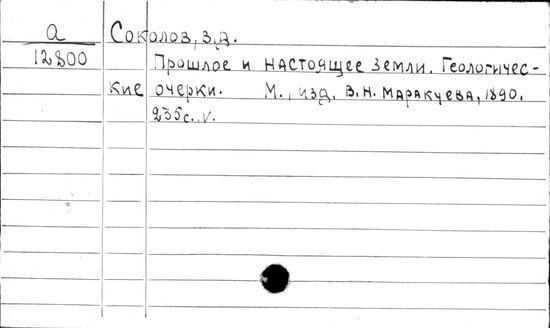 а
12800
Соколов, В.Д.
Прошлое и настоящее Земли. Геологичес-
кие очерки. М., изд. В.Н. Маракуева, 1890.
235с., V.